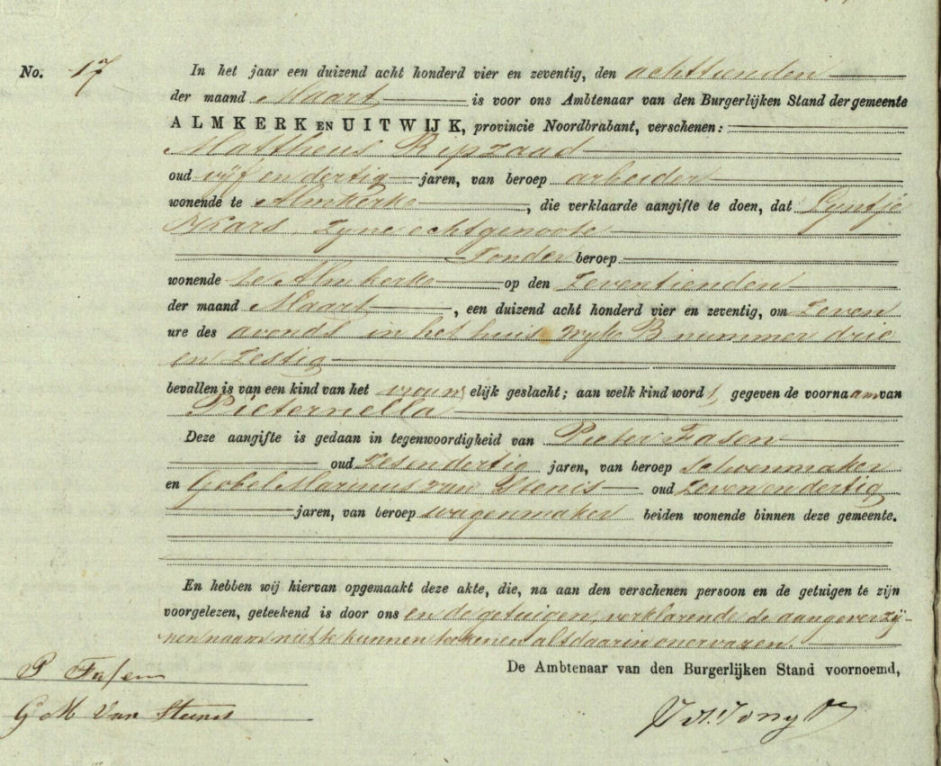 No. 17 In het jaar een duizend acht honderd vier en zeventig, den achttienden
der maand Maart is voor ons Ambtenaar van den Burgerlijken Stand der gemeente
ALMKERK EN UITWIJK, provincie Noordbrabant, verschenen:
Mattheus Ripzaad
oud vijf en dertig jaren, van beroep arbeider
wonende te Almkerke, die verklaarde aangifte te doen, dat Lyntje
Kvars, zyne echtgenoote
Zonder beroep
wonende te Almkerke op den Zeventienden
der maand Maart, een duizend acht honderd vier en zeventig, om Zeven
ure des avonds in het huis Wyk B nummer drie
en zestig
bevallen is van een kind van het vrouwelijk geslacht; aan welk kind wordt gegeven de voornaam van
Pieternella
Deze aangifte is gedaan in tegenwoordigheid van Pieter Fasen
oud zesendertig jaren, van beroep schoenmaker
en Gobel Marinus van Stenis oud zevenendertig
jaren, van beroep wagenmaker beiden wonende binnen deze gemeente.
En hebben wij hiervan opgemaakt deze akte, die, na aan den verschenen persoon en de getuigen te zijn
voorgelezen, geteekend is door ons en de getuigen, verklarende de aangever zij-
nen naam niet te kunnen teekenen als daarin onervaren.
De Ambtenaar van den Burgerlijken Stand voornoemd,
P Fasen
G M Van Stenis